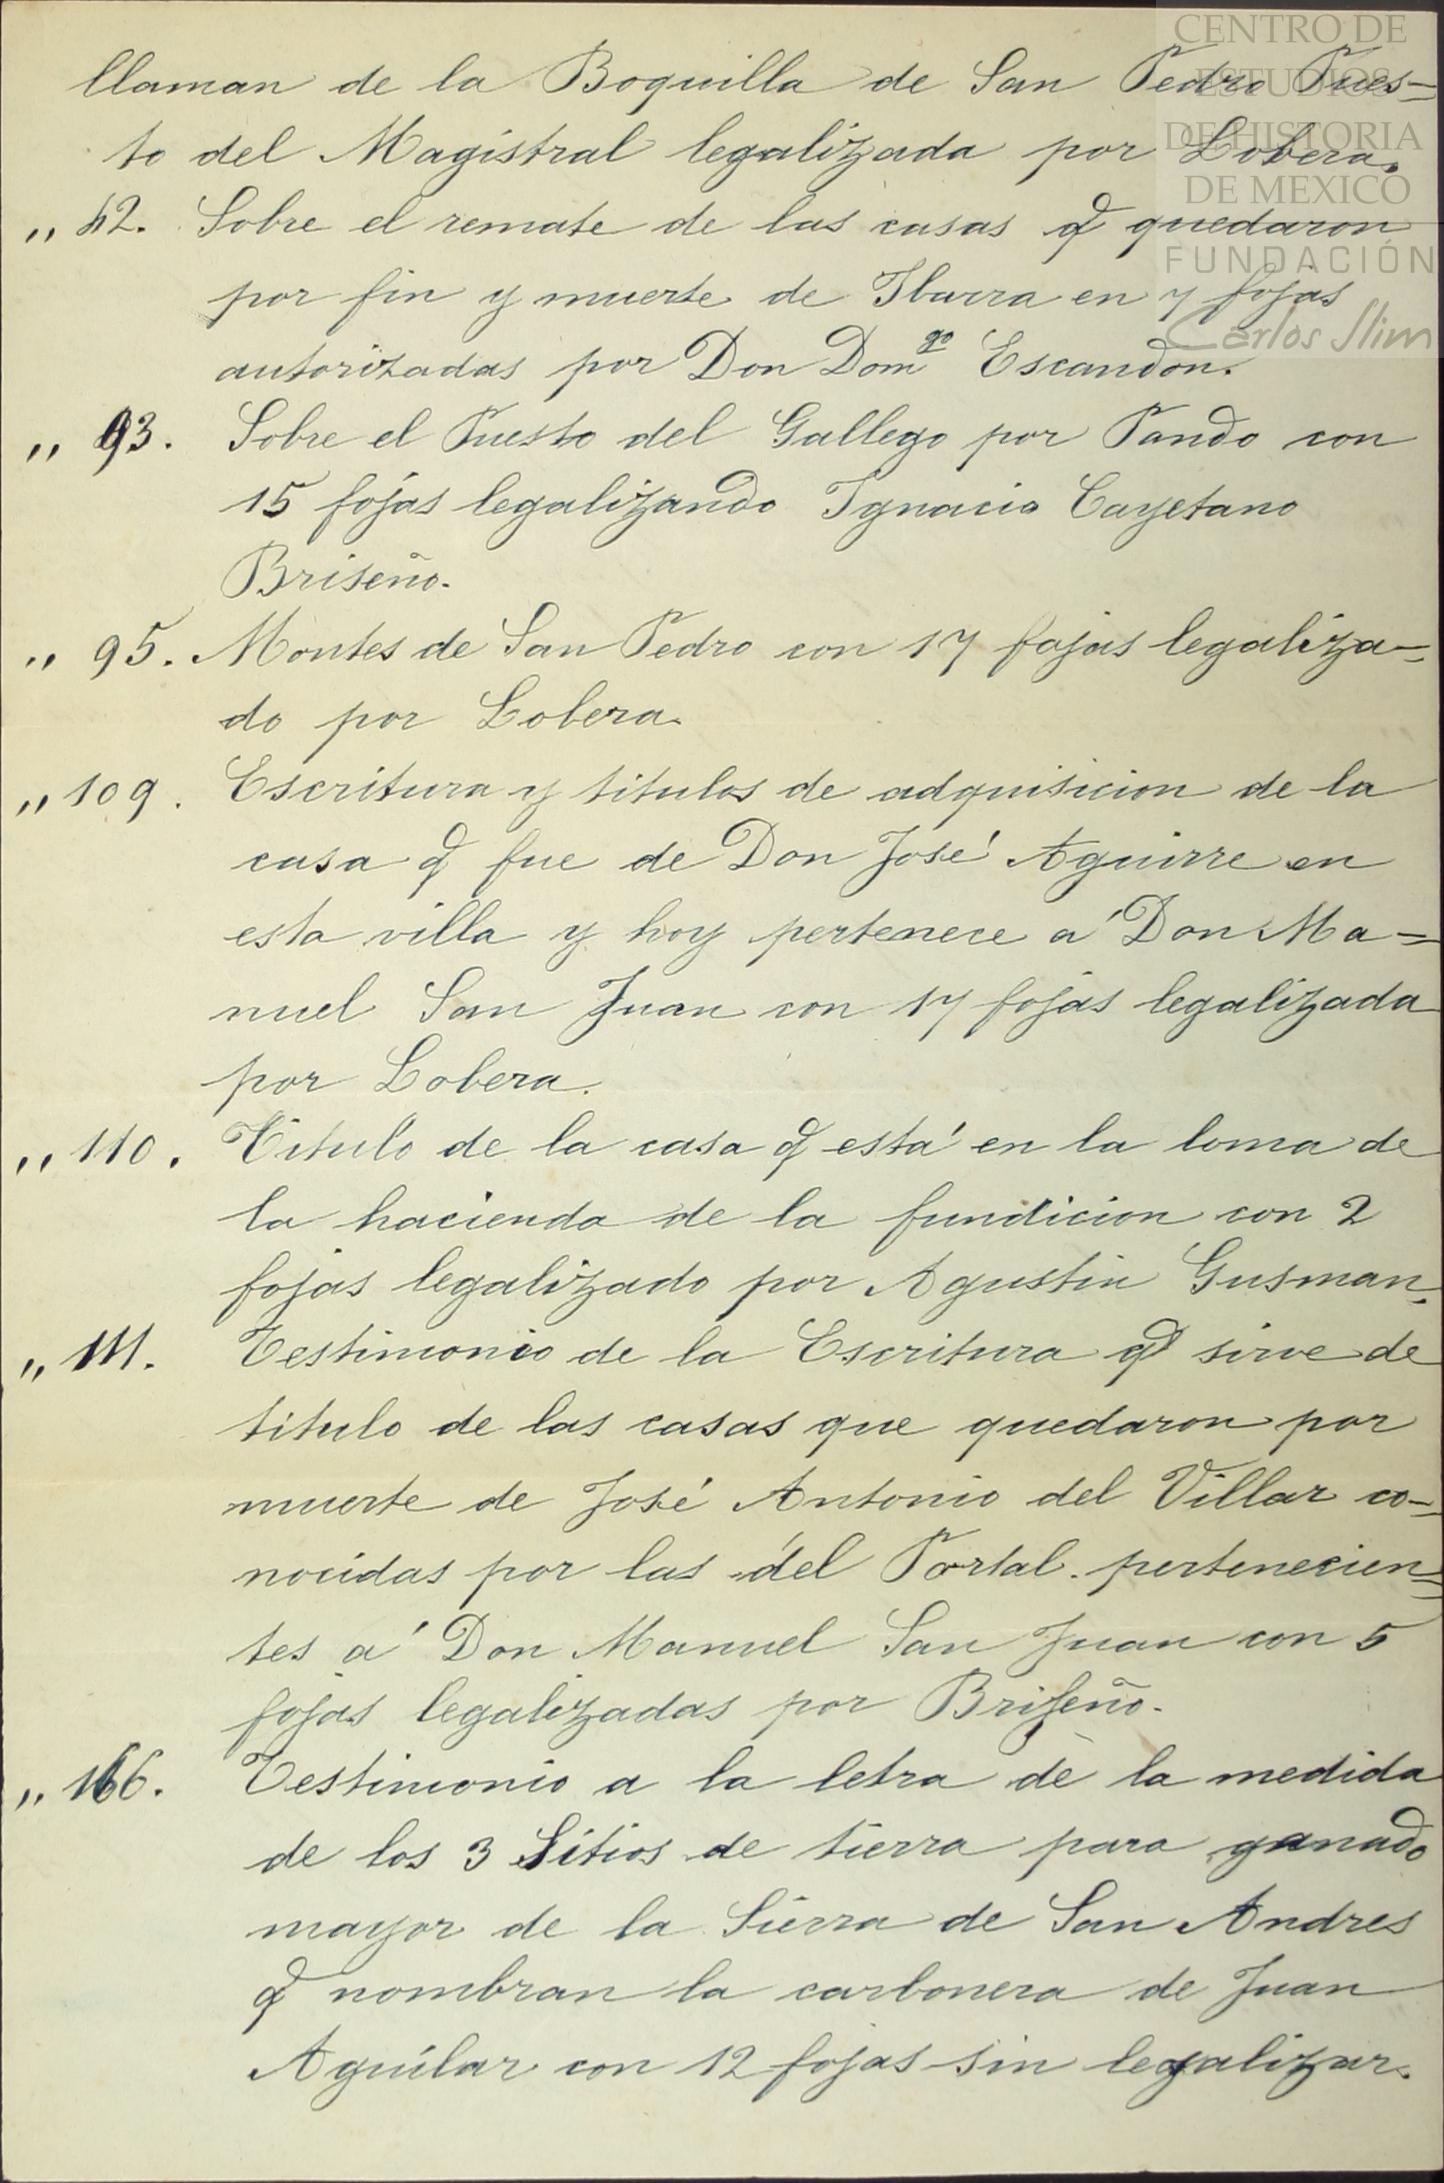 CENTRO DE
ESTUDIOS
DE HISTORIA
DE MEXICO
FUNDACIÓN
Carlos Slim
llaman de la Boquilla de San Pedro Pues-
to del Magistral legalizada por Lobera.
„ 42. Sobre el remate de las casas q̃ quedaron
por fin y muerte de Ibarra en 7 fojas
autorizadas por Don Dom<sup>go</sup> Escandon.
„ 93. Sobre el Puesto del Gallego por Pando con
15 fojas legalizando Ignacio Cayetano
Briseño.
„ 95. Montes de San Pedro con 17 fojas legaliza-
do por Lobera.
„ 109. Escritura y titulos de adquisicion de la
casa q̃ fue de Don José Aguirre en
esta villa y hoy pertenece á Don Ma=
nuel San Juan con 17 fojas legalizada
por Lobera.
„ 110. Titulo de la casa q̃ está en la loma de
la hacienda de la fundicion con 2
fojas legalizado por Agustin Gusman.
„ 111. Testimonio de la Escritura q̃ sirve de
titulo de las casas que quedaron por
muerte de José Antonio del Villar co-
nocidas por las del Portal. pertenecien=
tes á Don Manuel San Juan con 5
fojas legalizadas por Briseño.
„ 166. Testimonio a la letra de la medida
de los 3 Sitios de tierra para ganado
mayor de la Sierra de San Andres
q̃ nombran la carbonera de Juan
Aguilar con 12 fojas sin legalizar.